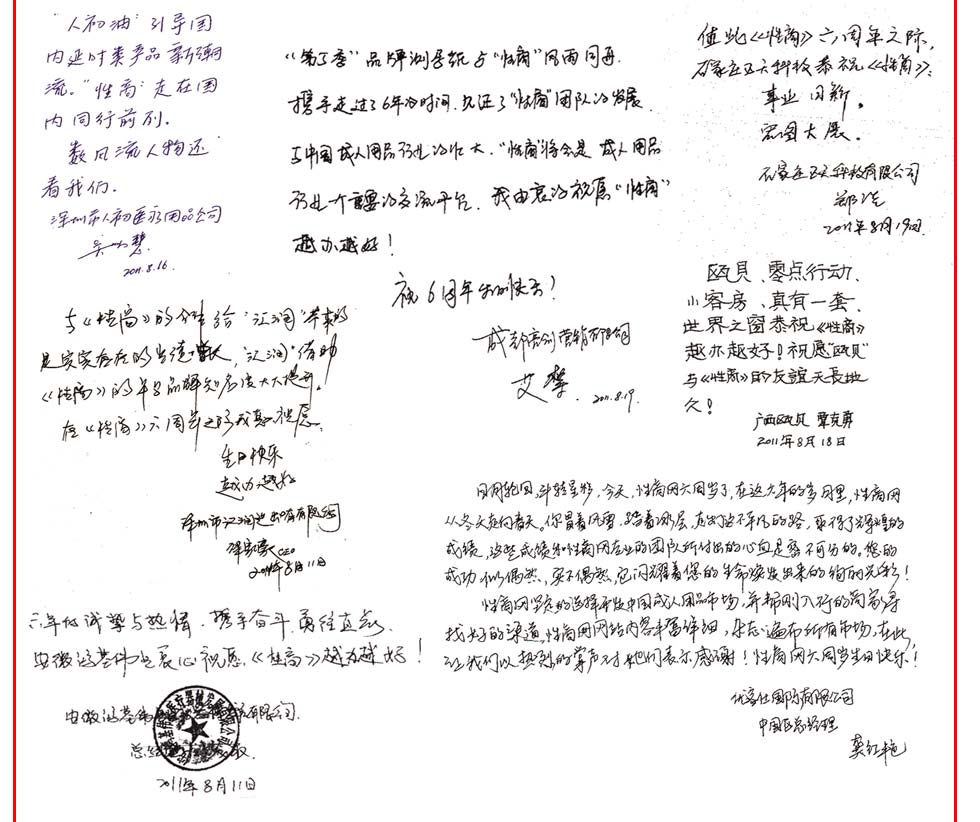 "人初油"引导国
内延时类产品新潮
流。"性商"走在国
内同行前列。
数风流人物还
看我们。
深圳市人初医疗用品公司
2011.8.16.
《第1季》品牌测导纸与"性商"风雨同舟.
携手走过了6年的时间.见证了"性商"团队的发展
与中国成人用品行业的壮大."性商"将会是成人用品
行业一个重要的交流平台.我由衷的祝愿"性商"
越办越好!
祝6周年生日快乐!
成都亮剑营销有限公司
艾
2011.8.19.
值此《性商》六周年之际,
石家庄五天科技恭祝《性商》:
事业日新。
宏图大展。
石家庄五天科技有限公司
郑
2011年8月19日
瓯贝、零点行动、
小客房、真有一套、
世界之窗恭祝《性商》
越办越好!祝愿"瓯贝"
与《性商》的友谊天長地
久!
广西瓯贝 覃克勇
2011年8月18日
与《性商》的合作给"汇润"带来的
是实实在在的业绩增长,"汇润"借助
《性商》的平台品牌知名度大大提升。
在《性商》六周年之际诚意祝愿:
生日快乐
越办越好
深圳市汇润进出口有限公司
CEO
2011年8月11日
六年的诚挚与热情,携手奋斗,勇往直前,
安徽鸿基伟业衷心祝愿,《性商》越办越好!
安徽鸿基伟业医疗器械有限公司
总经理
2011年8月11日
日月轮回,斗转星移,今天,性商网六周岁了,在这六年的岁月里,性商网
从冬天走向春天。你冒着风雪,踏着冰层,走出了这不平凡的路,取得了辉煌的
成绩,这些成绩和性商网专业的团队所付出的心血是密不可分的,您的
成功似偶然,实不偶然,它闪耀着您的生命焕发出来的绚丽光彩!
性商网坚定的选择开发中国成人用品市场,并帮刚入行的商家寻
找好的渠道,性商网网站内容丰富详细,杂志遍布所有市场,在此,
让我们以热烈的掌声对她们表示感谢!性商网六周岁生日快乐!
优客仕国际有限公司
中国区总经理
龚红艳